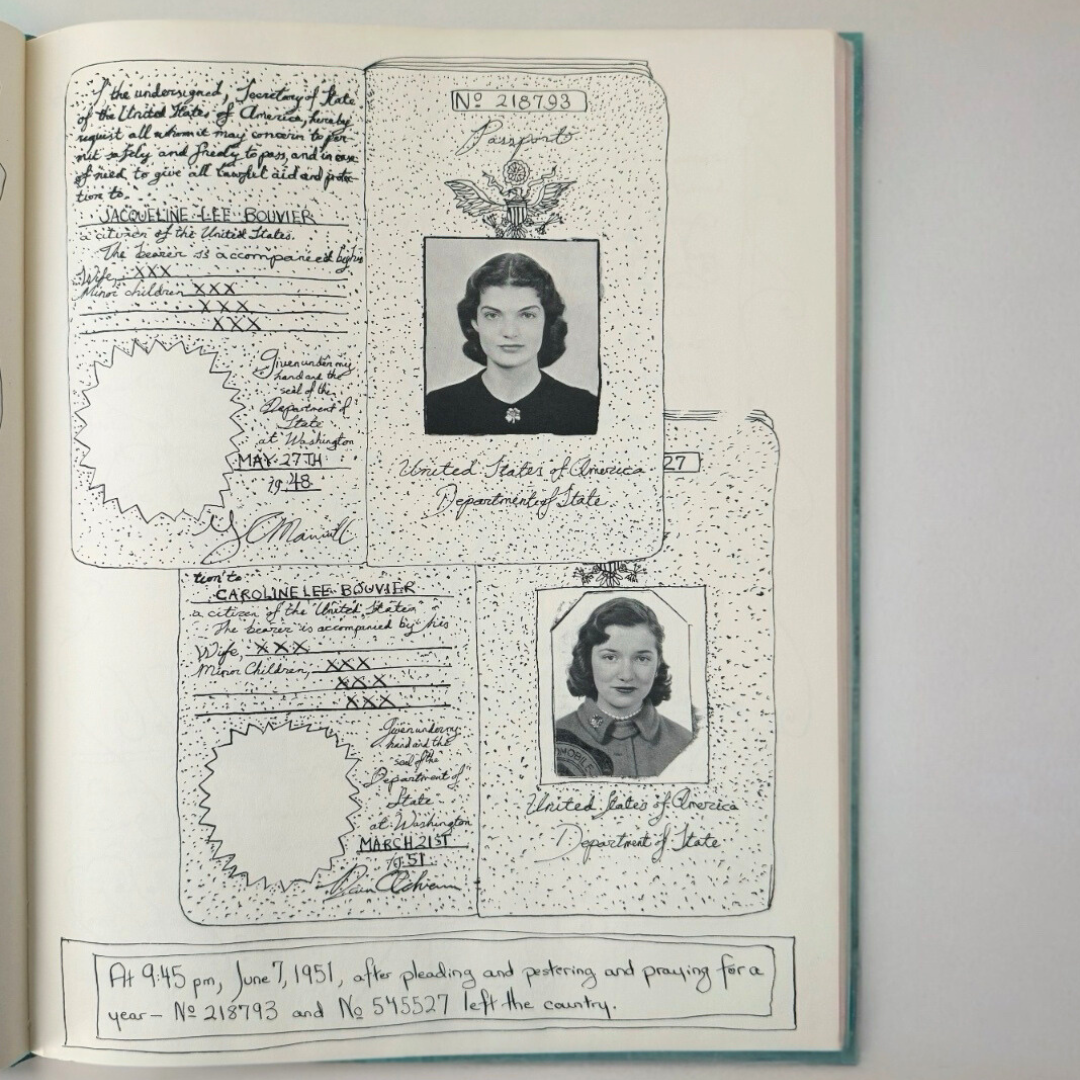 I the undersigned, Secretary of State
of the United States of America, hereby
request all whom it may concern to per-
mit safely and freely to pass, and in case
of need to give all lawful aid and protec-
tion to
JACQUELINE LEE BOUVIER
a citizen of the United States.
The bearer is accompanied by his
Wife, XXX
Minor children XXX
XXX
XXX
Given under my
hand and the
seal of the
Department of
State
at Washington
MAY 27TH
19 48
Nº 218793
Passport
United States of America
Department of State
27
tion to
CAROLINE LEE BOUVIER
a citizen of the United States
The bearer is accompanied by his
Wife, XXX
Minor Children, XXX
XXX
XXX
Given under my
hand and the
seal of the
Department of
State
at Washington
MARCH 21ST
19 51
MOBILE
United States of America
Department of State
At 9:45 pm, June 7, 1951, after pleading and pestering and praying for a
year — Nº 218793 and No 545527 left the country.